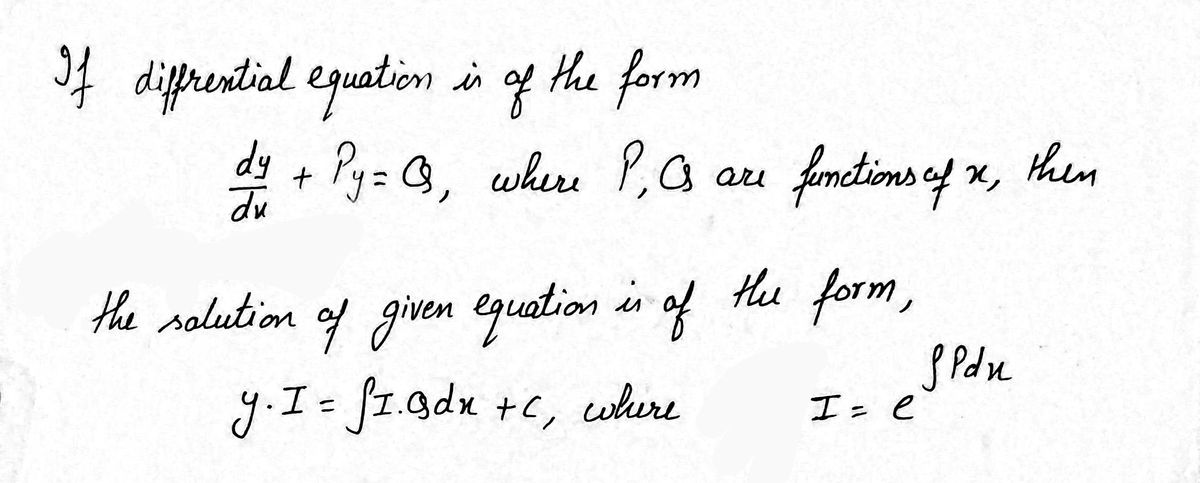 If diffrential equation is of the form
dy/dx + Py = Q, where P, Q are functions of x, then
the solution of given equation is of the form,
y·I = ∫I.Qdx + c, where I = e^∫Pdx